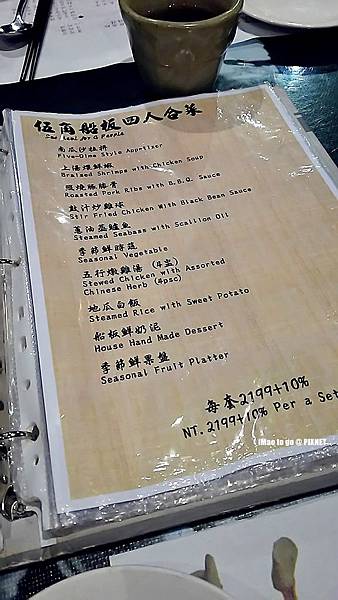 伍角船板四人合菜
Set Meal for 4 People
南瓜沙拉拼
Five-Dime Style Appetizer
上湯煨鮮蝦
Braised Shrimps with Chicken Soup
照燒豬膝骨
Roasted Pork Ribs with B.B.Q. Sauce
豉汁炒雞球
Stir Fried Chicken With Black Bean Sauce
蔥油蒸鱸魚
Steamed Seabass with Scallion Oil
季節鮮時蔬
Seasonal Vegetable
五行燉雞湯 (4盅)
Stewed Chicken with Assorted
Chinese Herb (4psc)
地瓜白飯
Steamed Rice with Sweet Potato
船板鮮奶泥
House Hand Made Dessert
季節鮮果盤
Seasonal Fruit Platter
每套2199+10%
NT. 2199+10% Per a Set
iMao to go @ PIXNET